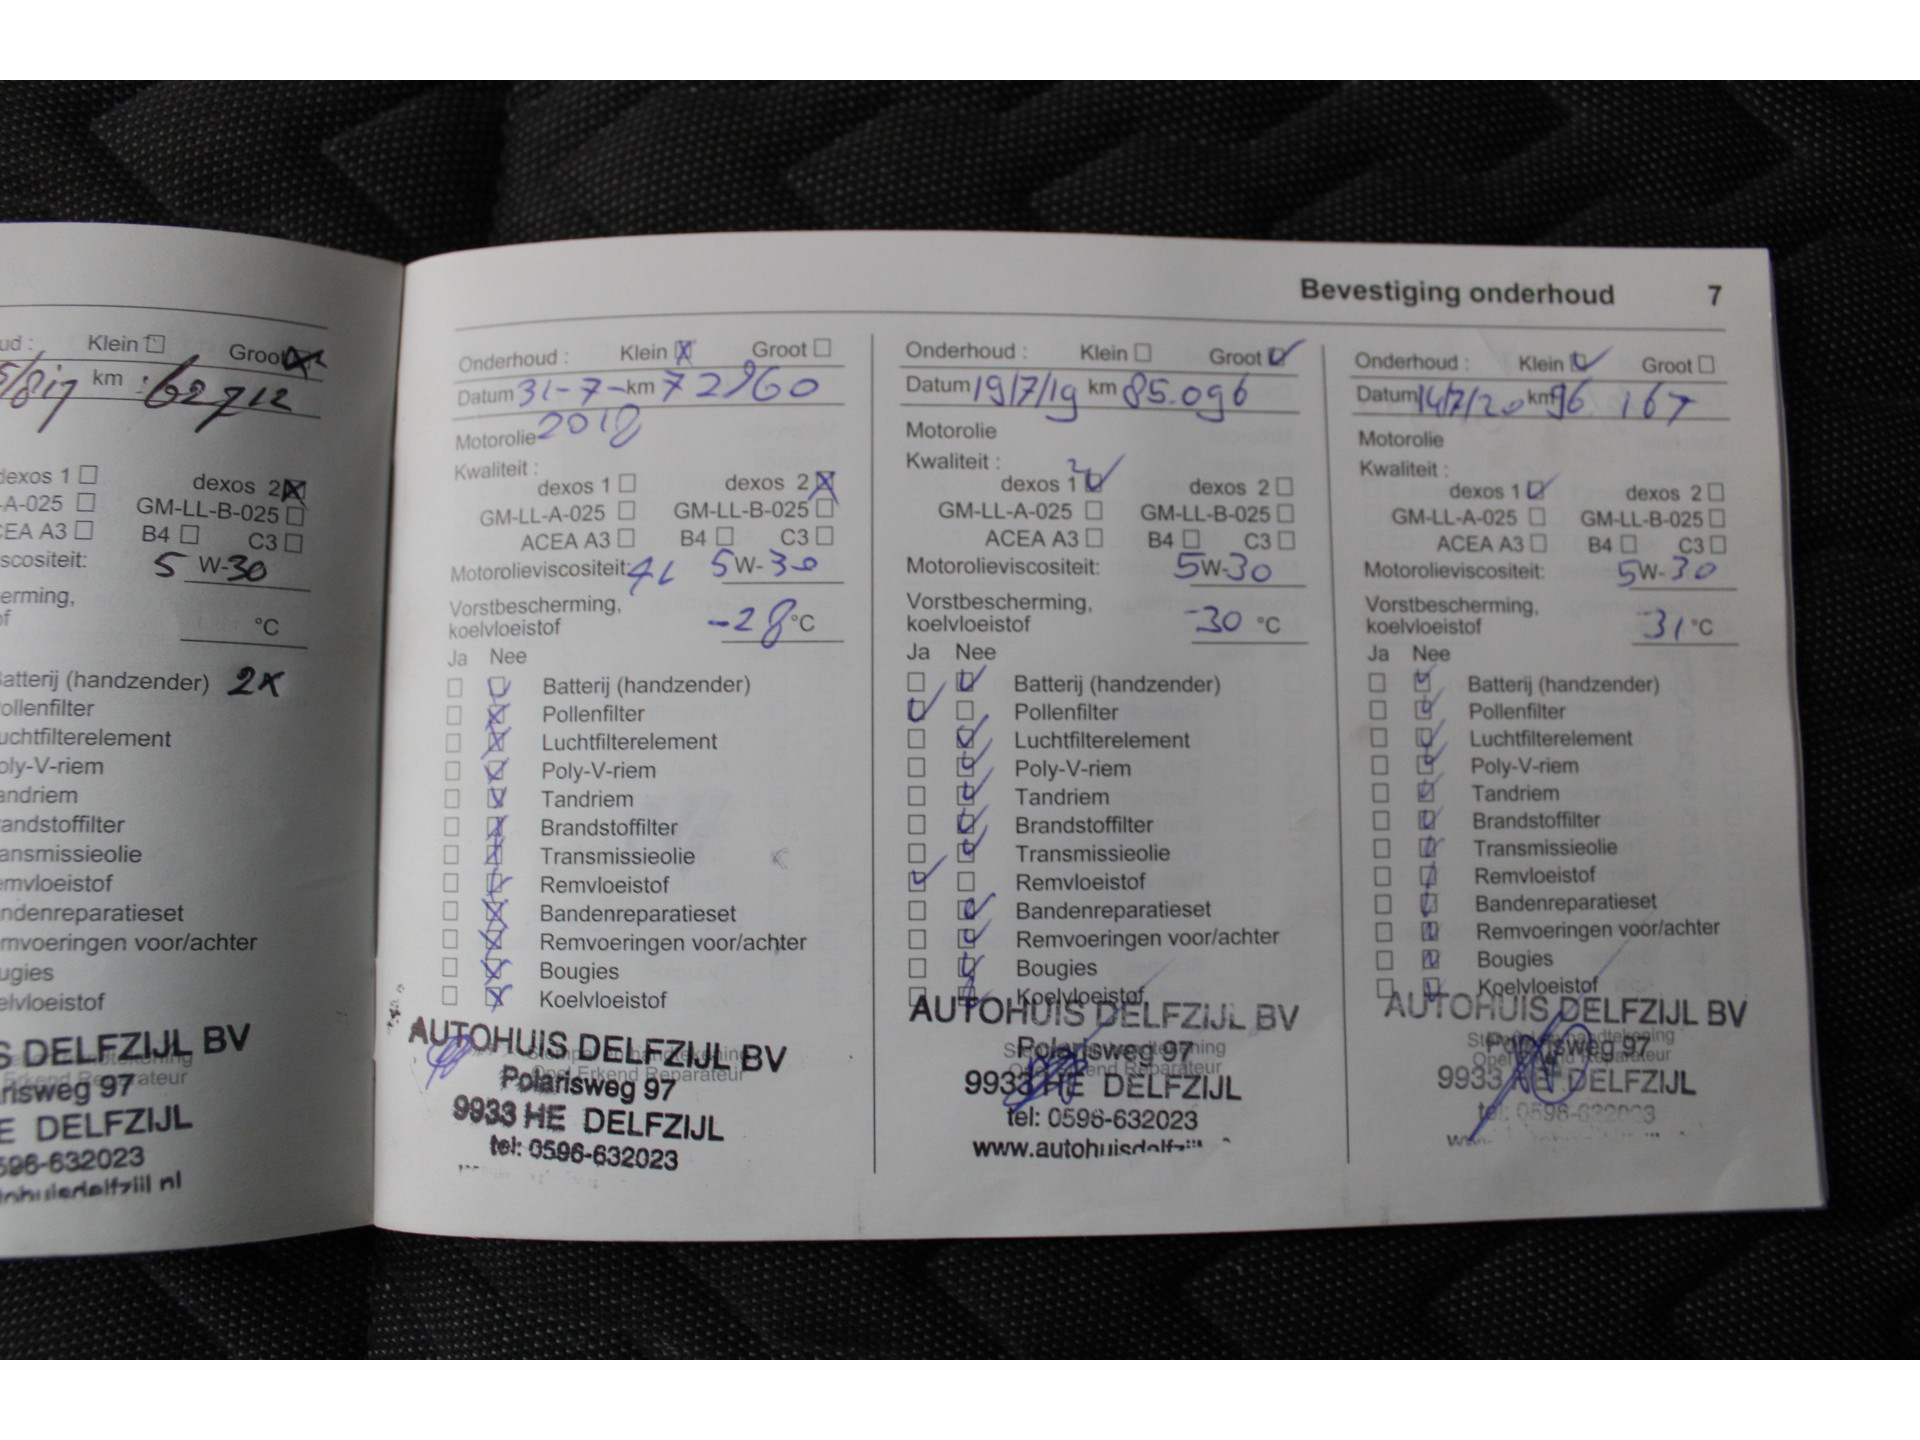 Klein Groot
km 62712
dexos 1 dexos 2
A-025 GM-LL-B-025
ACEA A3 B4 C3
5 W-30
°C
Batterij (handzender) 2x
Pollenfilter
Luchtfilterelement
Poly-V-riem
Tandriem
Brandstoffilter
Transmissieolie
Remvloeistof
Bandenreparatieset
Remvoeringen voor/achter
Bougies
Koelvloeistof
DELFZIJL BV
97
DELFZIJL
596-632023
Bevestiging onderhoud 7
Onderhoud : Klein Groot
Datum 31-7- km 72960
2018
Motorolie
Kwaliteit :
dexos 1 dexos 2
GM-LL-A-025 GM-LL-B-025
ACEA A3 B4 C3
Motorolieviscositeit: 4L 5 W-30
Vorstbescherming,
koelvloeistof -28 °C
Ja Nee
Batterij (handzender)
Pollenfilter
Luchtfilterelement
Poly-V-riem
Tandriem
Brandstoffilter
Transmissieolie
Remvloeistof
Bandenreparatieset
Remvoeringen voor/achter
Bougies
Koelvloeistof
AUTOHUIS DELFZIJL BV
Polarisweg 97
9933 HE DELFZIJL
tel: 0596-632023
Onderhoud : Klein Groot
Datum 19/7/19 km 85.096
Motorolie
Kwaliteit :
dexos 1 dexos 2
GM-LL-A-025 GM-LL-B-025
ACEA A3 B4 C3
Motorolieviscositeit: 5W-30
Vorstbescherming,
koelvloeistof -30 °C
Ja Nee
Batterij (handzender)
Pollenfilter
Luchtfilterelement
Poly-V-riem
Tandriem
Brandstoffilter
Transmissieolie
Remvloeistof
Bandenreparatieset
Remvoeringen voor/achter
Bougies
Koelvloeistof
AUTOHUIS DELFZIJL BV
Polarisweg 97
9933 HE DELFZIJL
tel: 0596-632023
Onderhoud : Klein Groot
Datum 14/7/20 km 96 167
Motorolie
Kwaliteit :
dexos 1 dexos 2
GM-LL-A-025 GM-LL-B-025
ACEA A3 B4 C3
Motorolieviscositeit: 5W-30
Vorstbescherming,
koelvloeistof -31 °C
Ja Nee
Batterij (handzender)
Pollenfilter
Luchtfilterelement
Poly-V-riem
Tandriem
Brandstoffilter
Transmissieolie
Remvloeistof
Bandenreparatieset
Remvoeringen voor/achter
Bougies
Koelvloeistof
AUTOHUIS DELFZIJL BV
Polarisweg 97
9933 HE DELFZIJL
tel: 0596-632023